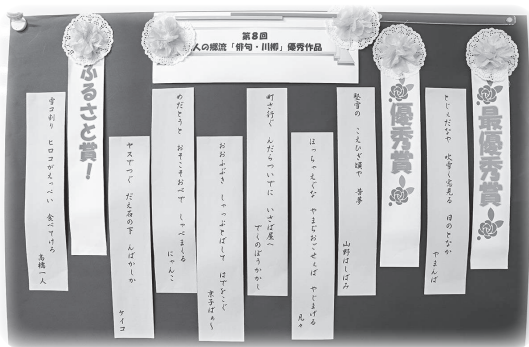 第8回
人の郷流「俳句・川柳」優秀作品
最優秀賞！
とじぇだなや 吹雪く窓見る 日のとなか
やまんば
優秀賞！
堅雪の こえひぎ頃や 昔夢
山野はしばみ
はっちゃえぐな やまぢおごせぇば やぐまげる
凡々
町さ行ぐ んだらついでに いさば屋へ
でくのぼうかかし
おおふぶき しゃっぷとばして はでをこぐ
京子ばぁ〜
めだとうと おそこそおべで しゃべまくる
にゃんこ
ヤスでつぐ だえ石の下 んばかじか
ケイコ
ふるさと賞！
雪コ割り ヒロコがえっぺい 食べてけろ
高橋一人